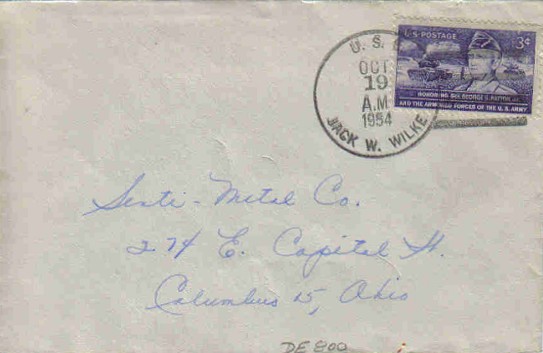 U. S.
OCT
19
A.M.
1954
JACK W. WILKE
U.S. POSTAGE 3¢
HONORING GEN. GEORGE S. PATTON JR.
AND THE ARMORED FORCES OF THE U. S. ARMY
Senti-Metal Co.
274 E. Capital St.
Columbus 15, Ohio
DE 800